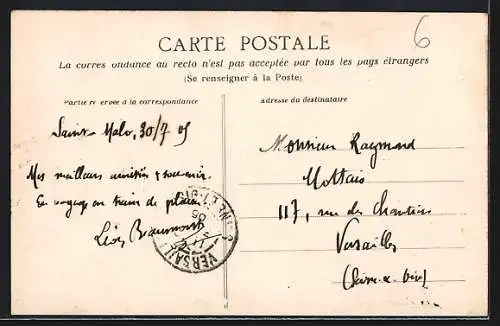 6
CARTE POSTALE
La corres ondance au recto n'est pas acceptée par tous les pays étrangers
(Se renseigner à la Poste)
Partie réservée à la correspondance
Adresse du destinataire
Saint-Malo, 30/7 05
Mes meilleurs amitiés & souvenir.
En voyage en train de plaisir
Léon Beaumont
VERSAILLES
Monsieur Raymond
Mottais
117, rue des Chantiers
Versailles
(Seine-&-Oise)